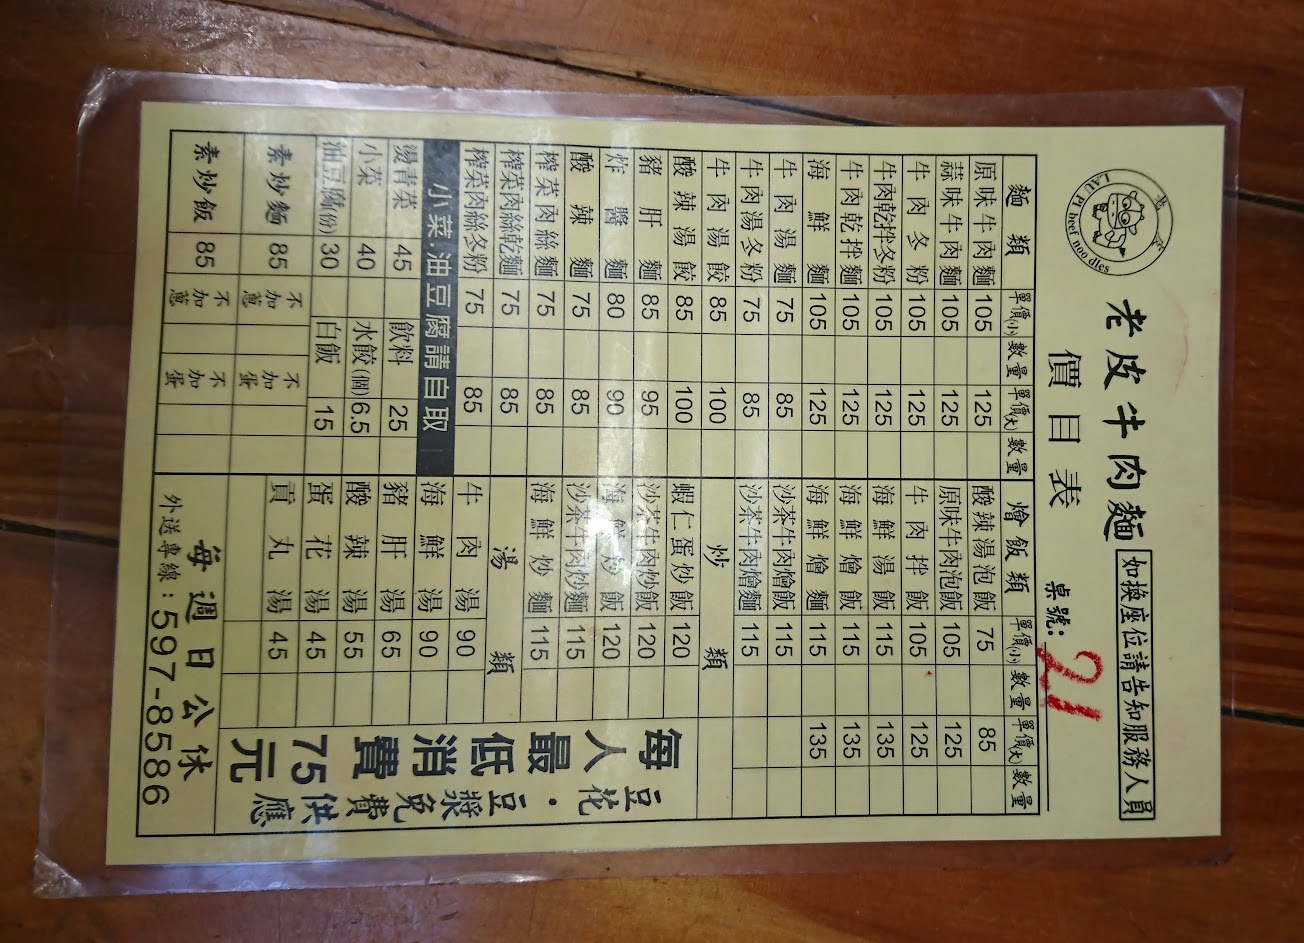 老皮
LAU PI beef noodles
老皮牛肉麵
如換座位請告知服務人員
價目表
桌號:21
麵類 單價(小) 數量 單價(大) 數量
原味牛肉麵 105 125
蒜味牛肉麵 105 125
牛肉冬粉 105 125
牛肉乾拌冬粉 105 125
牛肉乾拌麵 105 125
海鮮麵 105 125
牛肉湯麵 75 85
牛肉湯冬粉 75 85
牛肉湯餃 85 100
酸辣湯餃 85 100
豬肝麵 85 95
炸醬麵 80 90
酸辣麵 75 85
榨菜肉絲麵 75 85
榨菜肉絲乾麵 75 85
榨菜肉絲冬粉 75 85
小菜.油豆腐請自取
燙青菜 45 飲料 25
小菜 40 水餃(個) 6.5
油豆腐(份) 30 白飯 15
素炒麵 85 不加蔥 不加蛋
素炒飯 85 不加蔥 不加蛋
燴飯類 單價(小) 數量 單價(大) 數量
酸辣湯泡飯 75 85
原味牛肉泡飯 105 125
牛肉拌飯 105 125
海鮮湯飯 115 135
海鮮燴飯 115 135
海鮮燴麵 115 135
沙茶牛肉燴飯 115
沙茶牛肉燴麵 115
炒類
蝦仁蛋炒飯 120
沙茶牛肉炒飯 120
海鮮炒飯 120
沙茶牛肉炒麵 115
海鮮炒麵 115
湯類
牛肉湯 90
海鮮湯 90
豬肝湯 65
酸辣湯 55
蛋花湯 45
貢丸湯 45
每人最低消費75元
豆花.豆漿免費供應
每週日公休
外送專線:597-8586